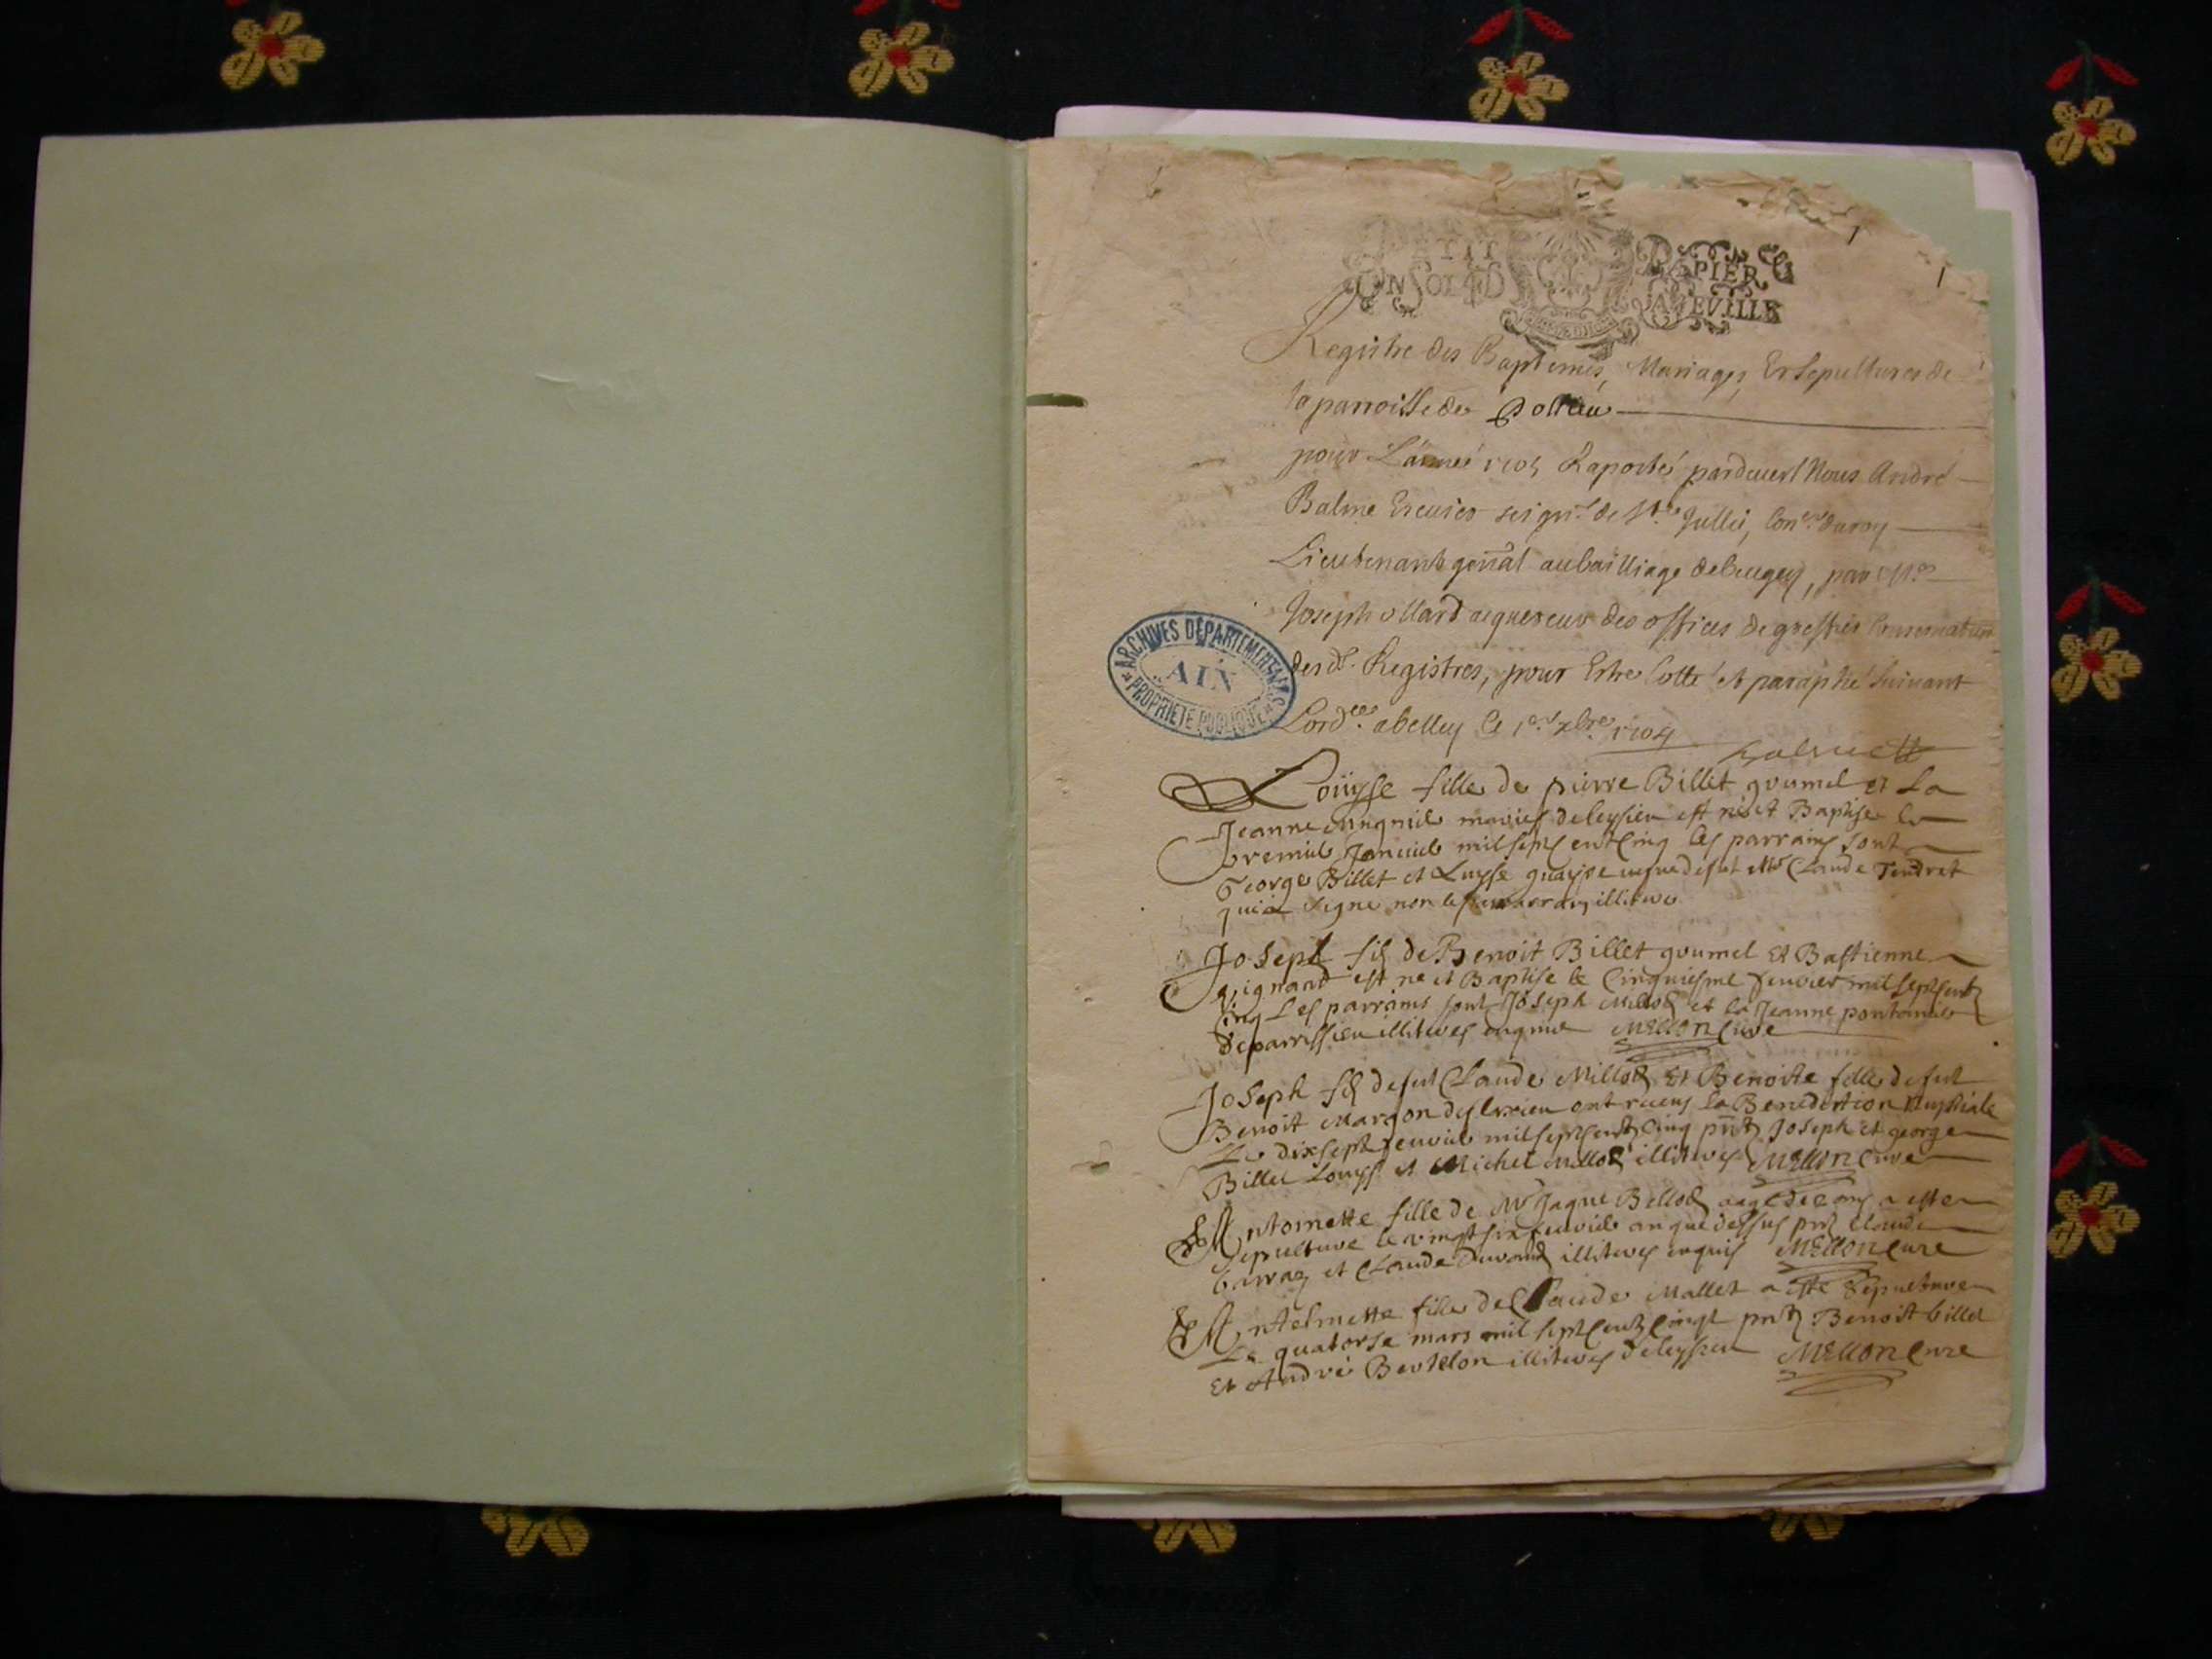 1
1
PETIT PAPIER
UN SOL SIX D LA FEUILLE
Registre des Baptemes, Mariages, Et Sepultures de
la parroisse de
pour L'année 1705 Raporté pardevert Nous André
Balme Escuier seigr. de Ste Jullie, Coner. du roy
Lieutenant genãl au bailliage de bugey, par Mre
Joseph ollard acquereur des offices de greffier Conservateur
des dt. Registres, pour Estre Cotté et paraphé suivant
Lordce. a belley le 1er xbre 1704
ARCHIVES DÉPARTEMENTALES
AIN
PROPRIÉTÉ PUBLIQUE
Loüyse fille de pierre Billet goumel et La
Jeanne mugnié mariés de leysieu est né et Baptise le
premie Janvie mil sept cent Cinq les parrains sont
George Billet et Luyse vefve de fut Mr Claude Tendret
qui a signe non le parrain illitere
Joseph fis de Benoit Billet goumel Et Bastienne
est ne et Baptise le Cinquiesme Jenvier mil sept cent
Cinq Les parrains sont Joseph Millot et la Jeanne
de parrissieu illiteres enquis MEllon Cure
Joseph fis de fut Claude Millot Et Benoite fille de fut
Benoit Margon de ont receus La Benediction Nuptiale
Le dixsept Jenvie mil sept cent Cinq pnt Joseph et george
Billet Louys et Michel Millot illiteres MEllon Cure
Antoinette fille de Mr Jaque Bellot aagé de ans a este
sepulture le vingt six Jenvie an que dessus pnt Claude
et Claude Durand illiteres enquis MEllon Cure
Antelmette fille de Claude Mallet a este Sepulture
Le quatorse mars mil sept cent Cinq pnt Benoit billet
Et André Bertelon illiteres de leysieu MEllon Cure